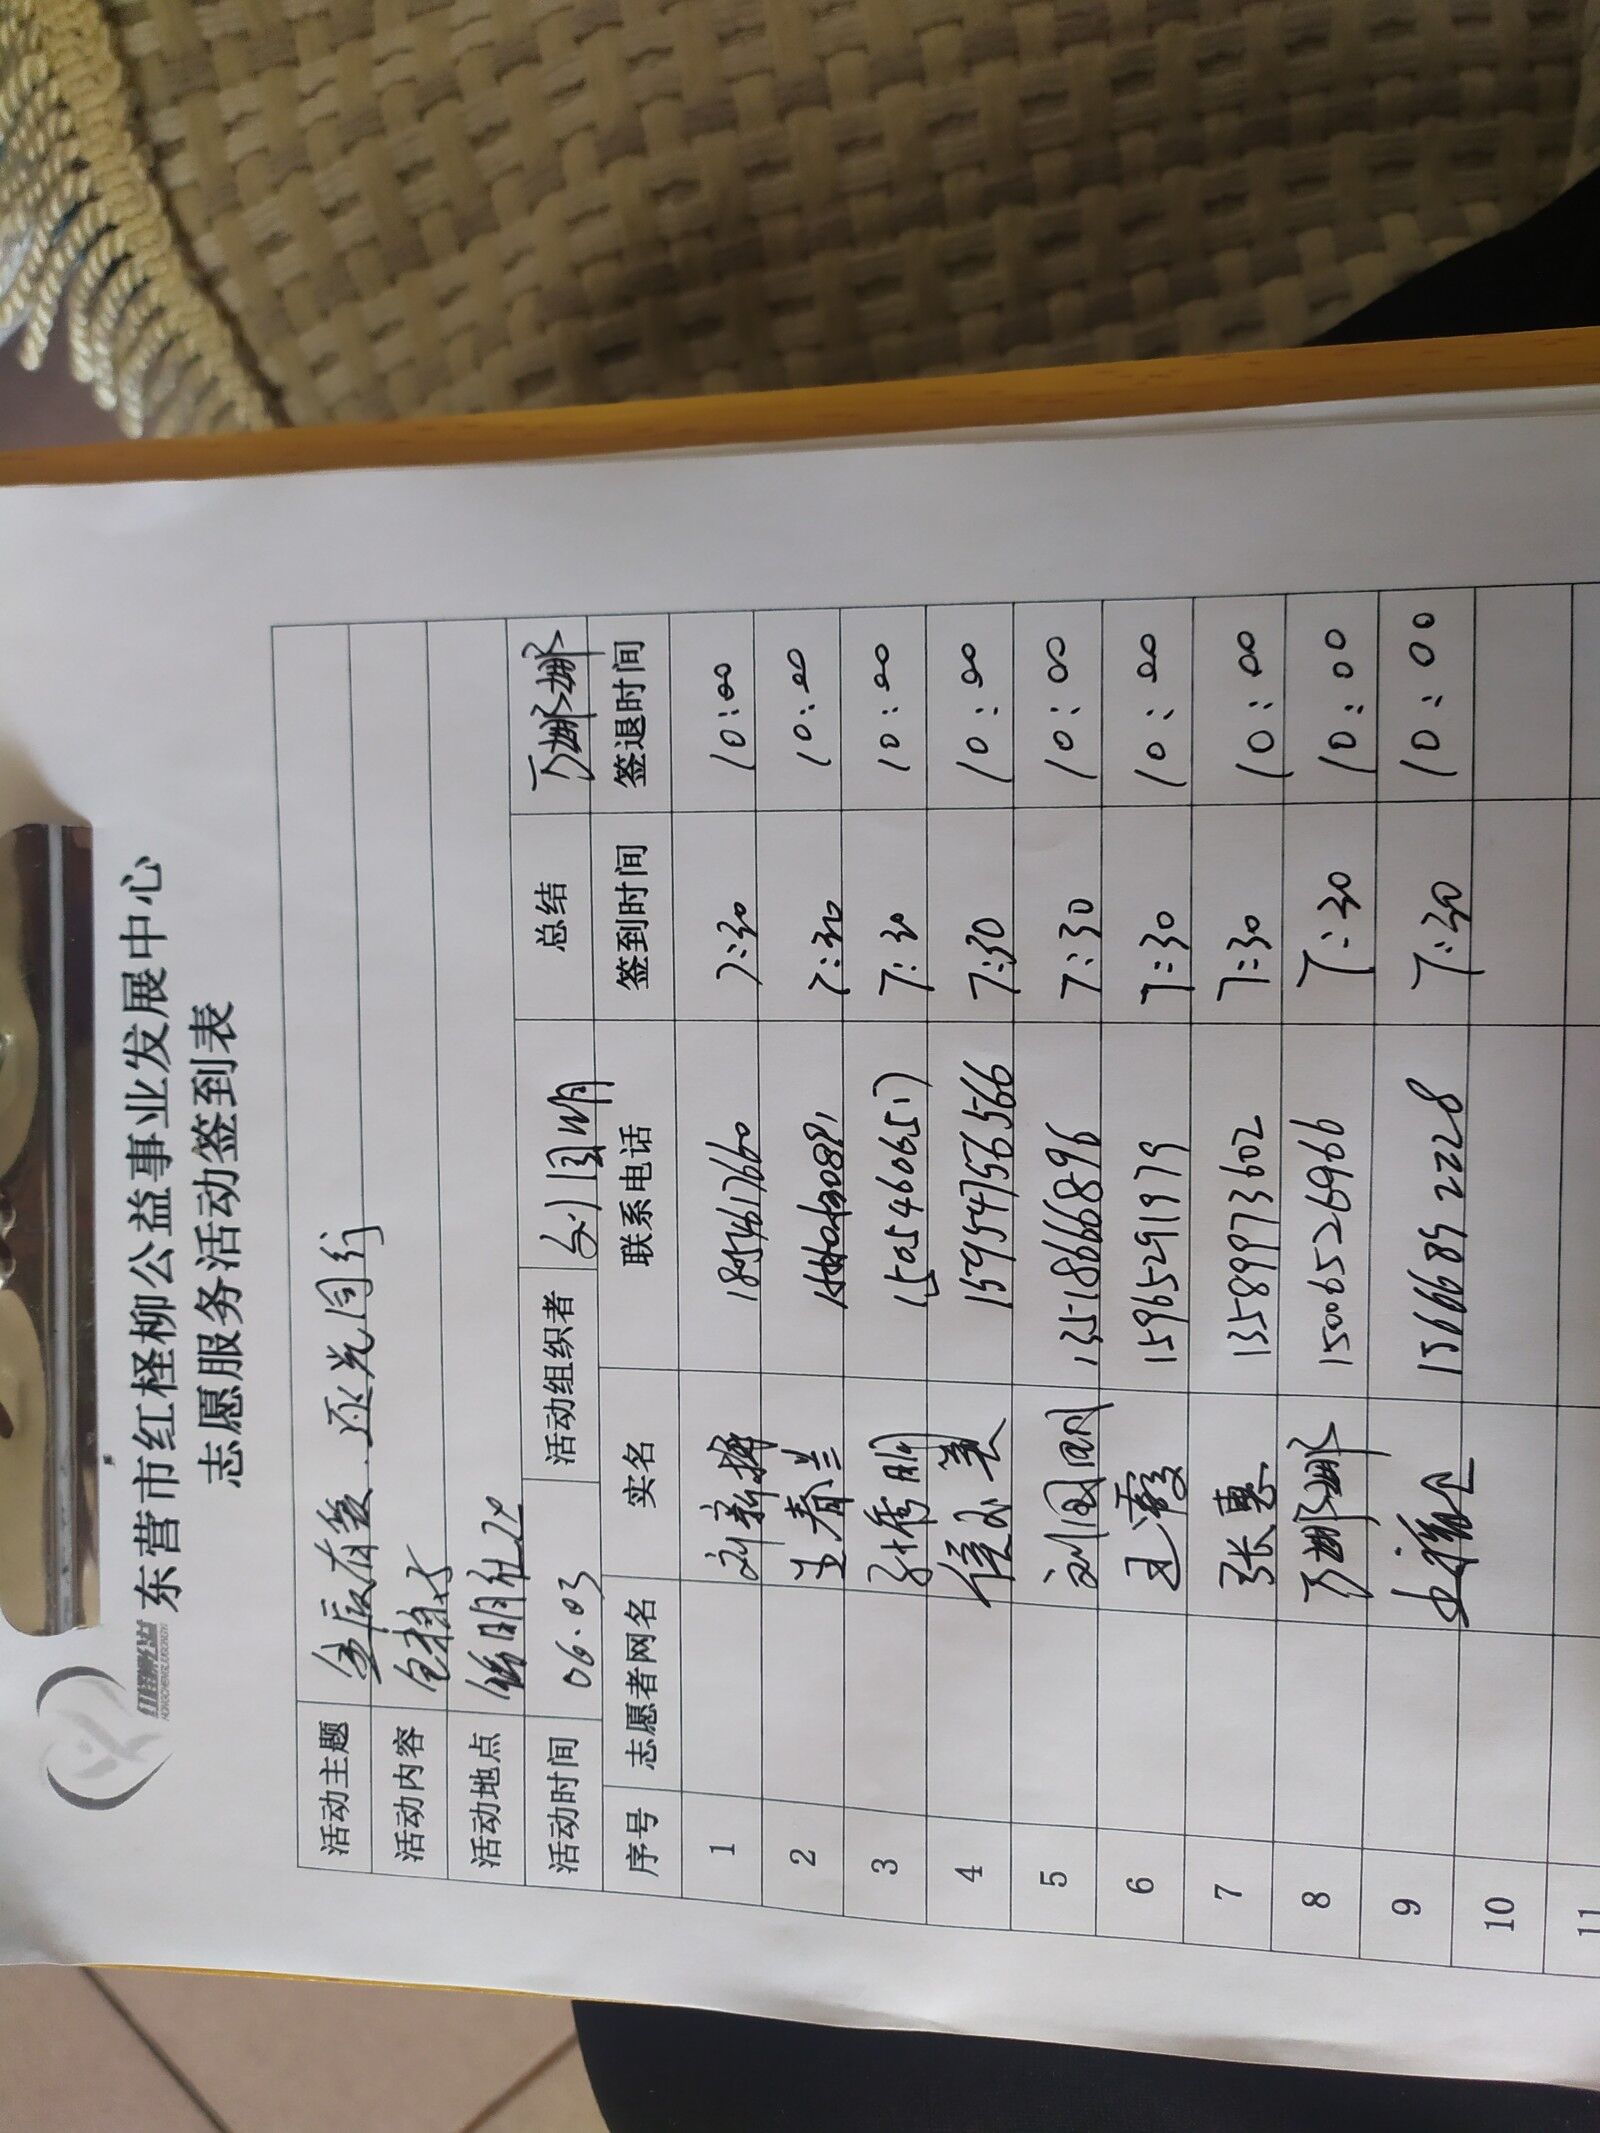 东营市红柽柳公益事业发展中心
志愿服务活动签到表
活动主题
活动内容
活动地点
活动时间 06.03 活动组织者 刘国明 总结
序号 志愿者网名 实名 联系电话 签到时间 签退时间
1 刘新 18954617660 7:30 10:00
2 王春兰 7:30 10:00
3 孙秀明 15054606517 7:30 10:00
4 侯玉美 15954756566 7:30 10:00
5 刘国明 13518666896 7:30 10:00
6 王霞 15965291979 7:30 10:00
7 张惠 13589973602 7:30 10:00
8 15006526966 7:30 10:00
9 15666852228 7:30 10:00
10
11